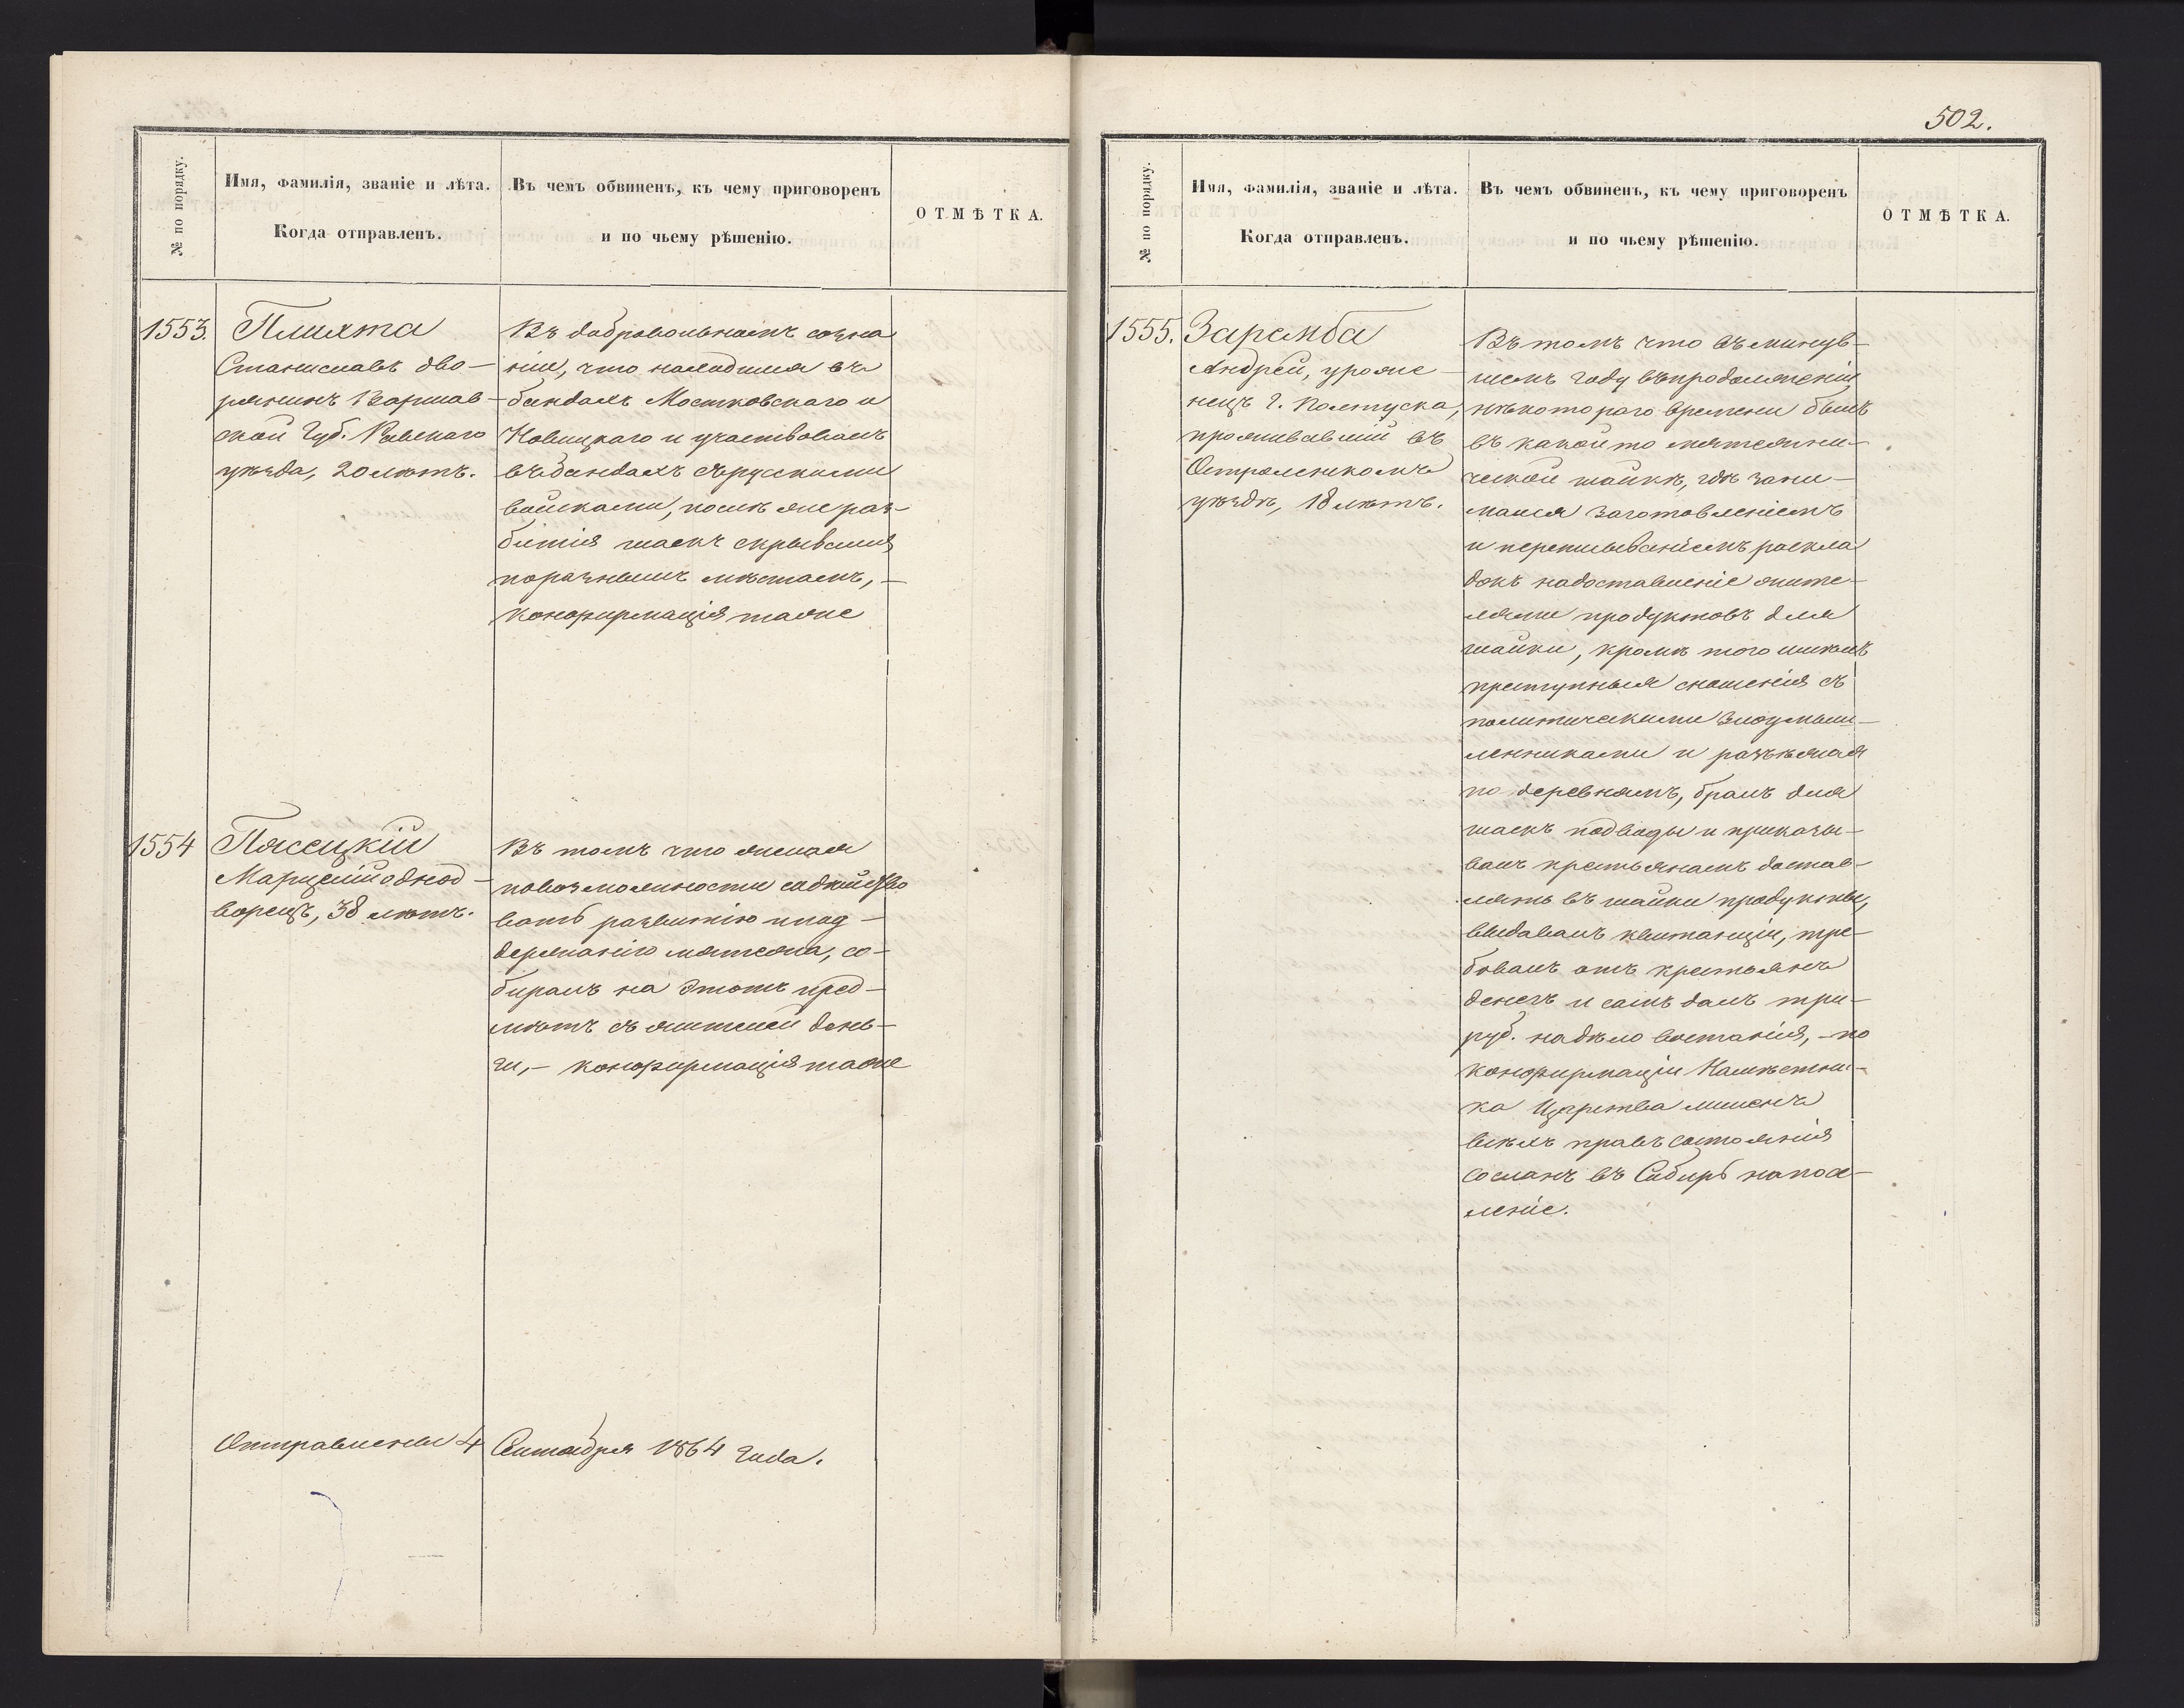 № по порядку.
Имя, фамилія, званіе и лѣта.
Когда отправленъ.
Въ чемъ обвиненъ, къ чему приговоренъ
и по чьему рѣшенію.
ОТМѢТКА.
1553. Плихта
Станиславъ дво-
рянинъ Варшав-
ской Губ. Равскаго
уѣзда, 20 лѣтъ.
Въ добровольномъ созна
ніи, что находился въ
бандахъ Мостковскаго и
Новицкаго и участвовалъ
въ бандахъ съ русскими
войсками, послѣ же раз-
битія шаекъ скрывался
по разнымъ мѣстамъ, -
конфирмація таже
1554 Пясецкій
Марцелій однод-
ворецъ, 38 лѣтъ.
Въ томъ что желая
по возможности содѣйство
вать развитію и под-
держанію мятежа, со-
биралъ на этотъ пред-
мѣтъ съ жителей день-
ги, - конфирмація таже
Отправлены 4 Сентября 1864 года.
502.
№ по порядку.
Имя, фамилія, званіе и лѣта.
Когда отправленъ.
Въ чемъ обвиненъ, къ чему приговоренъ
и по чьему рѣшенію.
ОТМѢТКА.
1555. Заремба
Андрей, уроже-
нецъ г. Полтуска,
проживавшій въ
Остроленскомъ
уѣздѣ, 18 лѣтъ.
Въ томъ что въ минув-
шемъ году въ продолженіи
нѣкотораго времени былъ
въ какой то мятежни-
ческой шайкѣ, гдѣ зани-
мался заготовленіемъ
и переписываніемъ раскла
докъ на доставленіе жите-
лями продуктовъ для
шайки, кромѣ того имѣлъ
преступныя сношенія съ
политическими злоумыш-
ленниками и разъѣзжая
по деревнямъ, бралъ для
шаекъ подводы и приказы-
валъ крестьянамъ достав-
лять въ шайки продукты,
выдавалъ квитанціи, тре-
бовалъ отъ крестьянъ
денегъ и самъ далъ три
руб. на дѣло востанія, - по
конфирмаціи Намѣстни-
ка Царства лишенъ
всѣхъ правъ состоянія
сосланъ въ Сибирь на посе-
леніе.